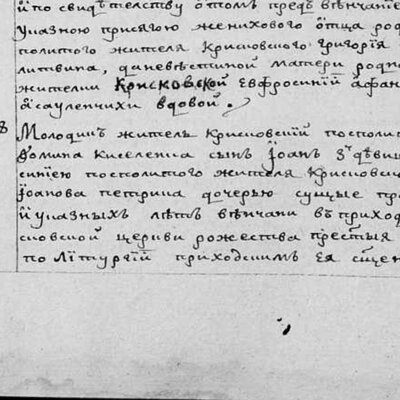 й̈ по свидѣтелству о̓томъ предъ вѣнчание
указною присягою женихового ѻ́тца родо
политого жителя Крисковского григория
литвина, а невѣстиной матери родно
жителки Крисковской Евфросинїй афан
ѣсауленчихи вдовой.
8 Молодикъ житель Крисковский посполит
Фомина Киселенка сынъ Їоанъ зъ дѣвиц
синїею посполитого жителя Крисковско
Їоанова петрика дочерью сущые пра
й̈ указныхъ лѣтъ вѣнчани въ приход
сковской церкви рожества престыя
по Литургїй приходскимъ ея сщен